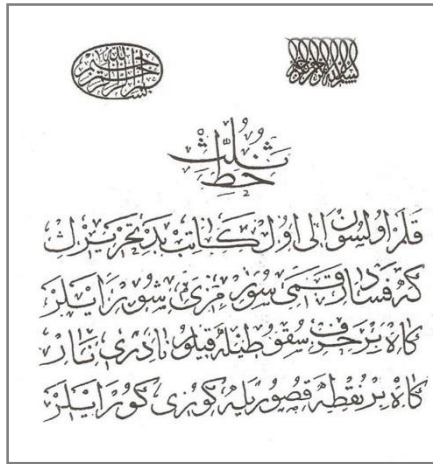 بسم الله الرحمن الرحيم
بسم الله الرحمن الرحيم
خط ثلث
قلم اولسون الى اول كاتب بد تحريرك
كه فساد رقمى سورمزى شور ايلر
كاه بر حرف سقوطيله قيلور نادرى نار
كاه بر نقطه قصوريله كوزى كور ايلر